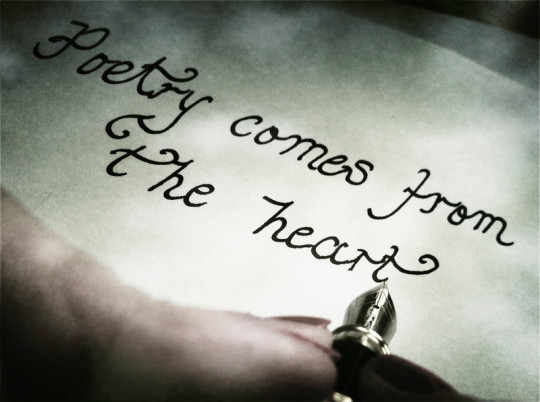 Poetry comes from
the heart